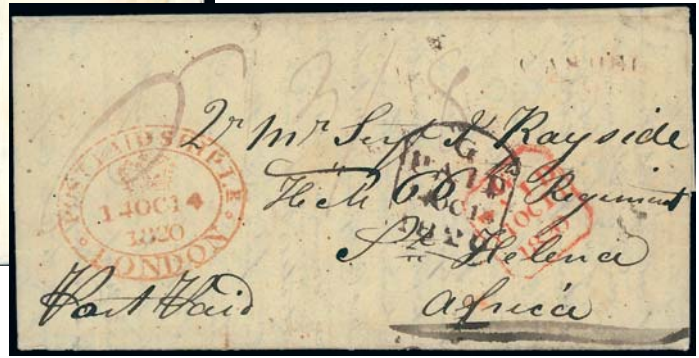 3/8
Qr Mr Serjt J Rayside
H M 66th Regiment
St Helena
Africa
Post Paid
POST PAID SHIP LR
14OC14
1820
LONDON
G
PAID
OC14
1820
OC
1820